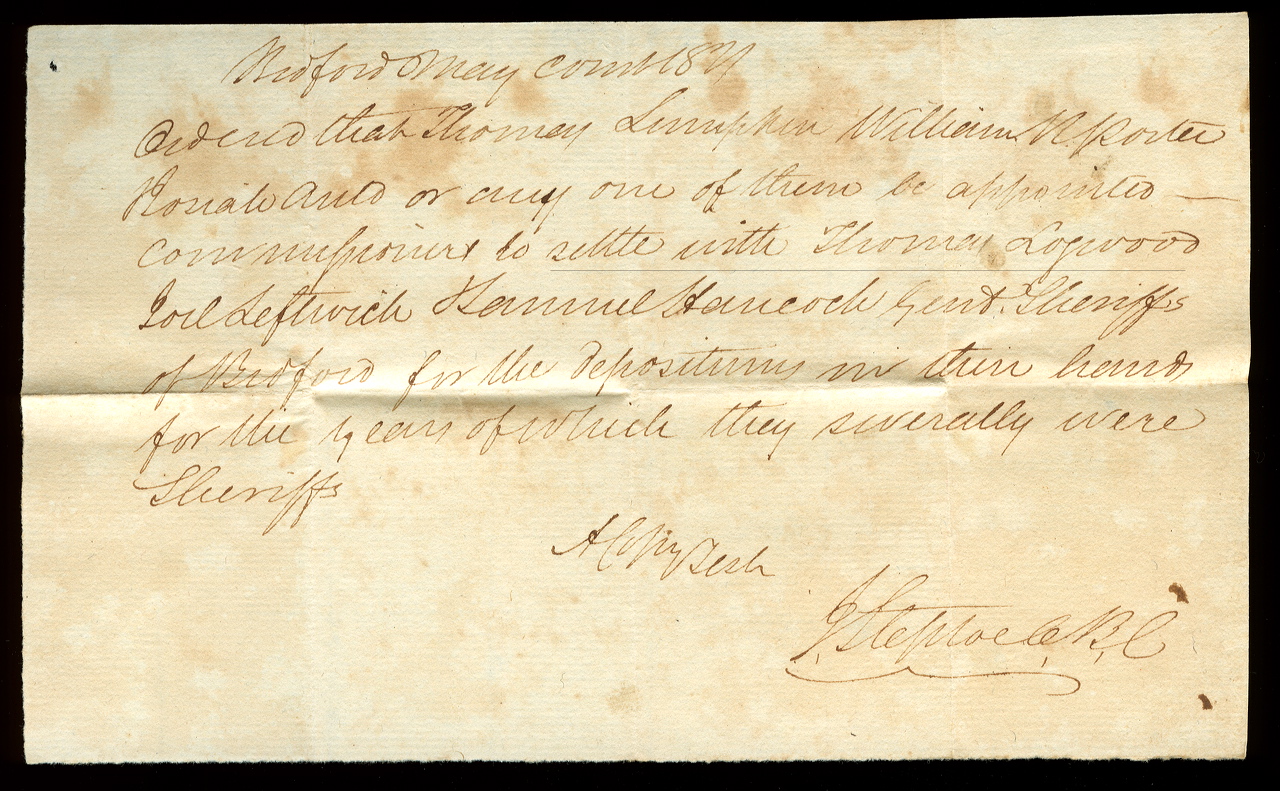 Bedford May Court 18
Ordered that Thomas Lumpkin William R. Porter
or any one of them be appointed —
commissioners to settle with Thomas Logwood
Joel Leftwich & Samuel Hancock Gent. Sheriffs
of Bedford for the depositums in their hands
for the years of which they severally were
Sheriffs
A Copy Teste
J. Steptoe C.B.C